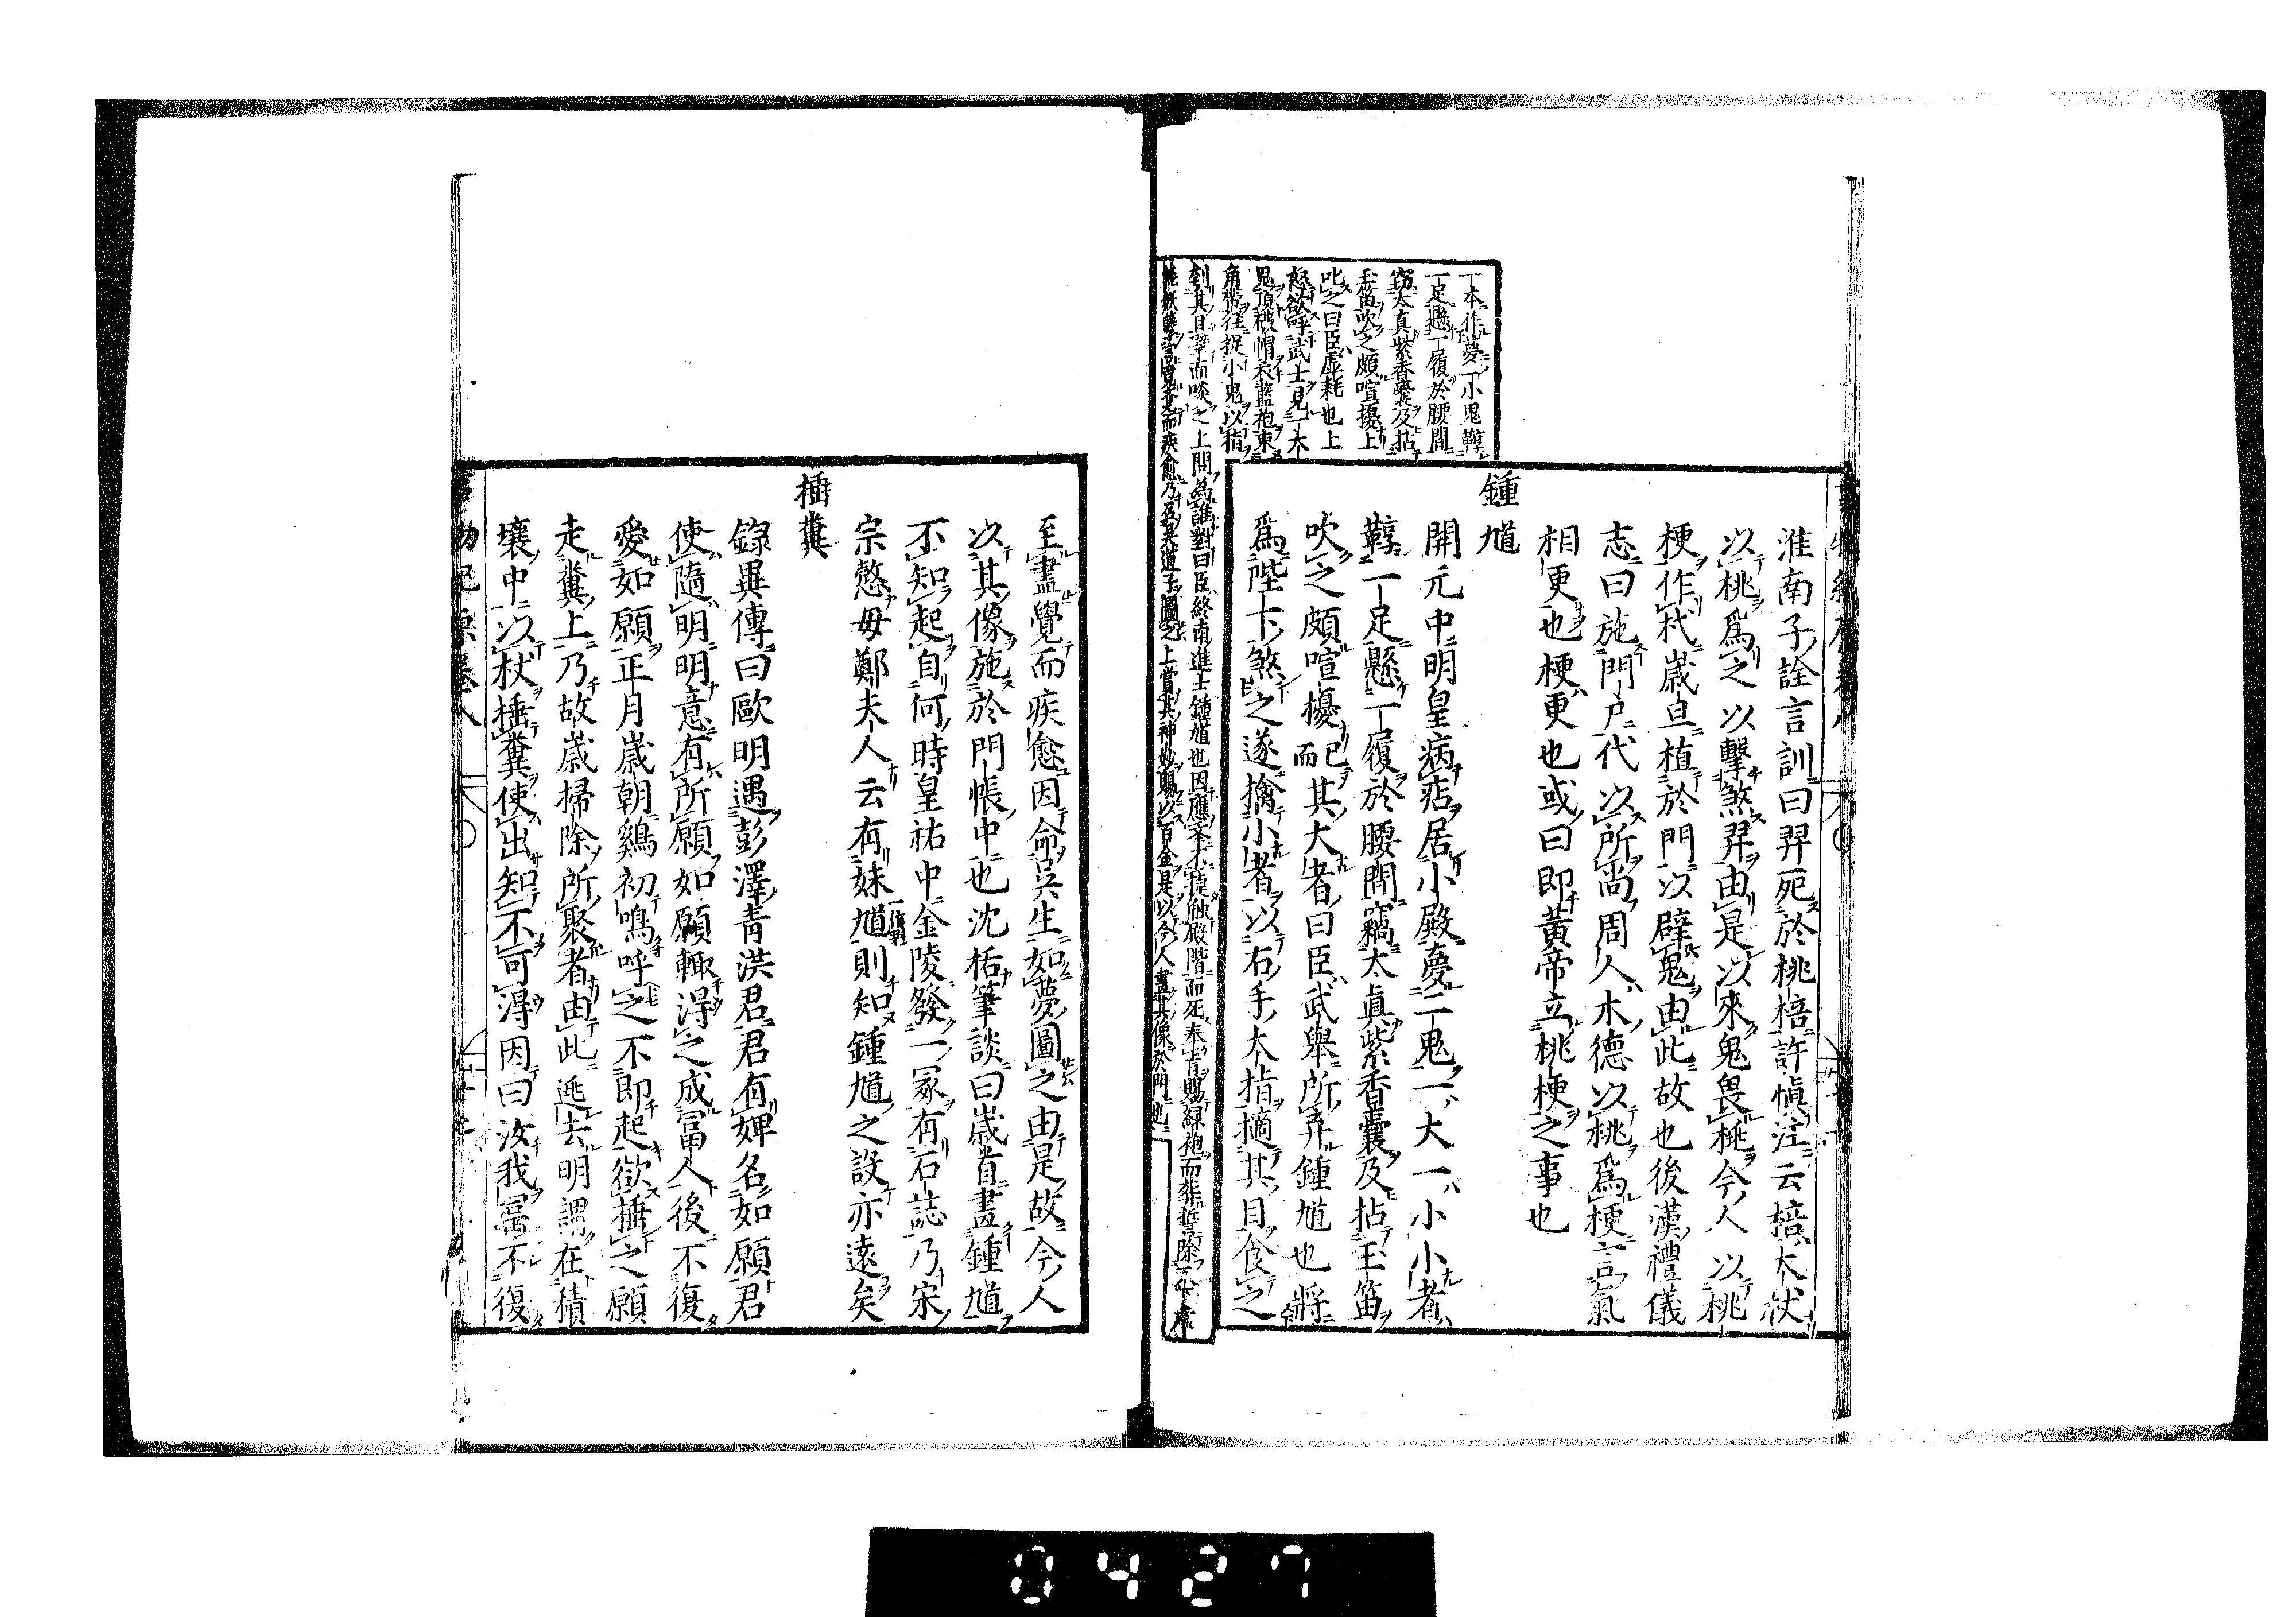 淮南子詮言訓曰羿死於桃棓許愼注云棓大杖
以桃爲之以擊煞羿由是以來鬼畏桃今人以桃
梗作杙歲旦植於門以辟鬼由此故也後漢禮儀
志曰施門戶代以所尚周人木德以桃爲梗言氣
相更也梗更也或曰即黃帝立桃梗之事也
鍾馗
開元中明皇病痁居小殿夢二鬼一大一小小者
鞟一足懸一履於腰間竊太眞紫香囊及拈玉笛
吹之頗喧擾而已其大者曰臣武舉所弃鍾馗也將
爲陛下煞之遂擒小者以右手大指摘其目食之
一本作夢一小鬼鞟
一足懸一履於腰間
窃太真紫香囊及拈
玉笛吹之頗喧擾上
叱之曰臣虛耗也上
怒欲呼武士見一大
鬼頂被帽衣藍袍束
角帶徃捉小鬼以指
刳其目擘而啖之上問為誰對曰臣終南進士鍾馗也因應不捷触殿階而死奉旨賜緑袍而葬誓除
妖孽言覚而疾愈乃召吳道子圖之上賞其神妙賜以百金是以今人畫其像於門也
至盡覺而疾愈因命吳生如夢圖之由是故今人
以其像施於門帳中也沈栝筆談曰歲首畫鍾馗
不知起自何時皇祐中金陵發一冢有石誌乃宋
宗慤母鄭夫人云有妹馗則知鍾馗之設亦遠矣
捶糞
錄異傳曰歐明遇彭澤青洪君君有婢名如願君
使隨明明意有所願如願輙得之成冨人後不復
愛如願正月歲朝鷄初鳴呼之不即起欲捶之願
走糞上乃故歲掃除所聚者由此逃去明謂在積
壤中以杖捶糞使出知不可得因曰汝我冨不復